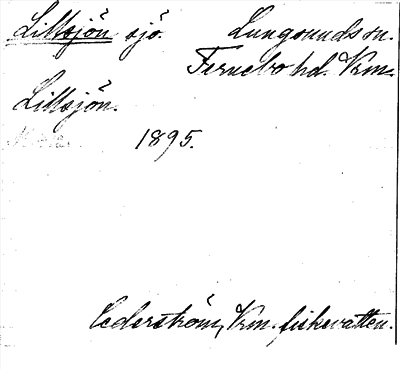 Lillsjön sjö. Lungsunds sn.
Fernebo hd. Vrm.
Lillsjön.
1895.
Cederström, Vrm. fiskevatten.